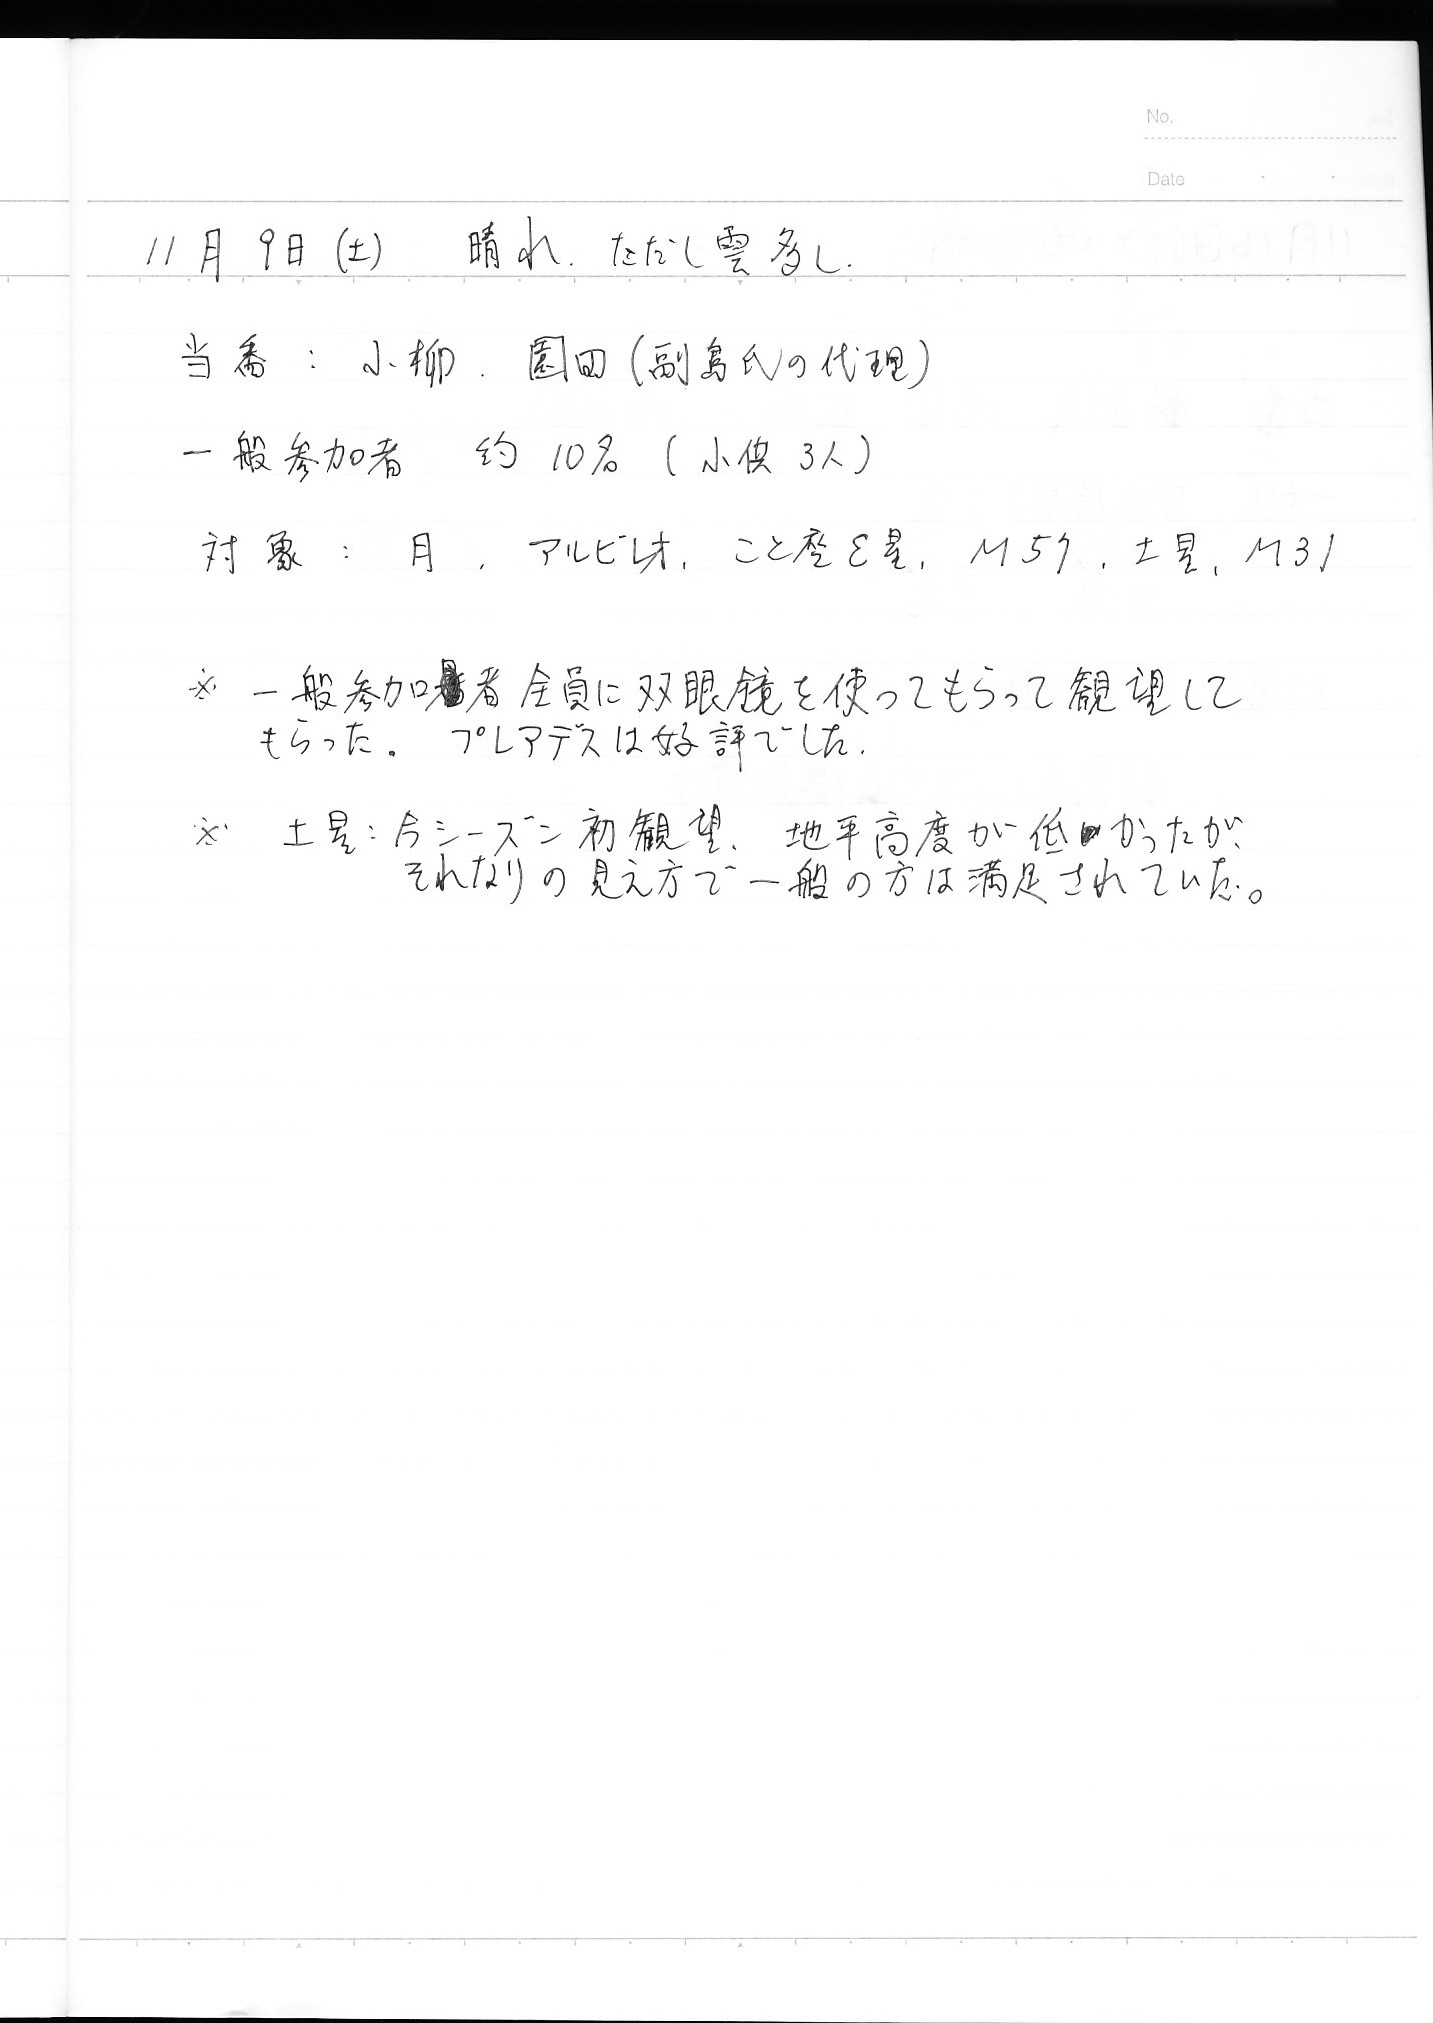 No.
Date
11月9日(土) 晴れ. ただし雲多し.
当番 : 小柳. 園田(副島氏の代理)
一般参加者 約10名 (小供3人)
対象 : 月, アルビレオ, こと座ε星, M57, 土星, M31
※ 一般参加者全員に双眼鏡を使ってもらって観望して
もらった。 プレアデスは好評でした.
※ 土星:今シーズン初観望、地平高度が低かったが、
それなりの見え方で一般の方は満足されていた。